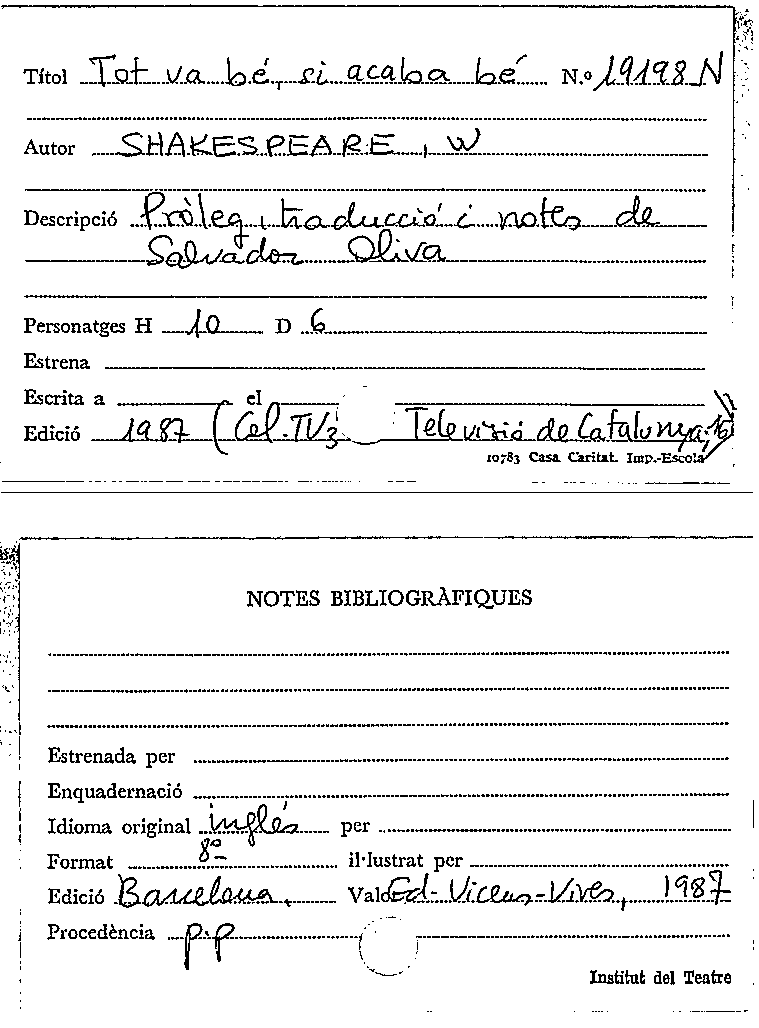 Títol Tot va bé, si acaba bé N.º 19198 N
Autor SHAKESPEARE, W
Descripció Pròleg, traducció i notes de
Salvador Oliva
Personatges H 10 D 6
Estrena
Escrita a el
Edició 1987 (Col. TV3 Televisió de Catalunya, 16)
10783 Casa Caritat. Imp.-Escola
NOTES BIBLIOGRÀFIQUES
Estrenada per
Enquadernació
Idioma original inglés per
Format 8º il·lustrat per
Edició Barcelona, Valor Ed. Vicens-Vives, 1987
Procedència p.p
Institut del Teatre